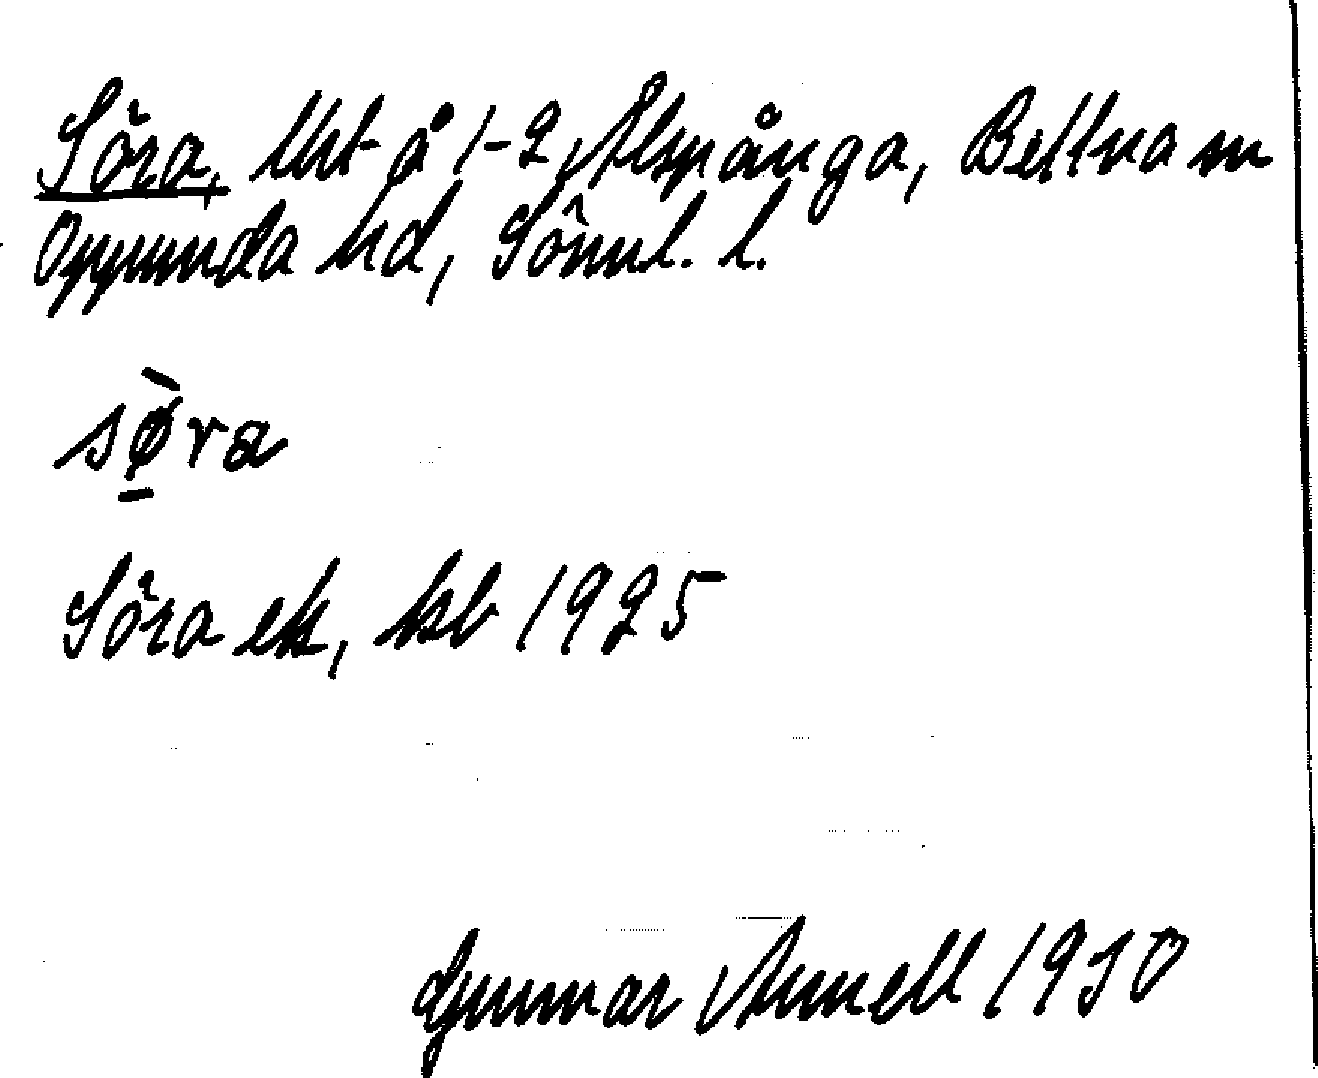 Söra, lht å 1-2 Alspånga, Bettna sn
Oppunda hd, Sörml. l.
sø̀ra
Söra ek, kb 1925
Gunnar Arnell 1930